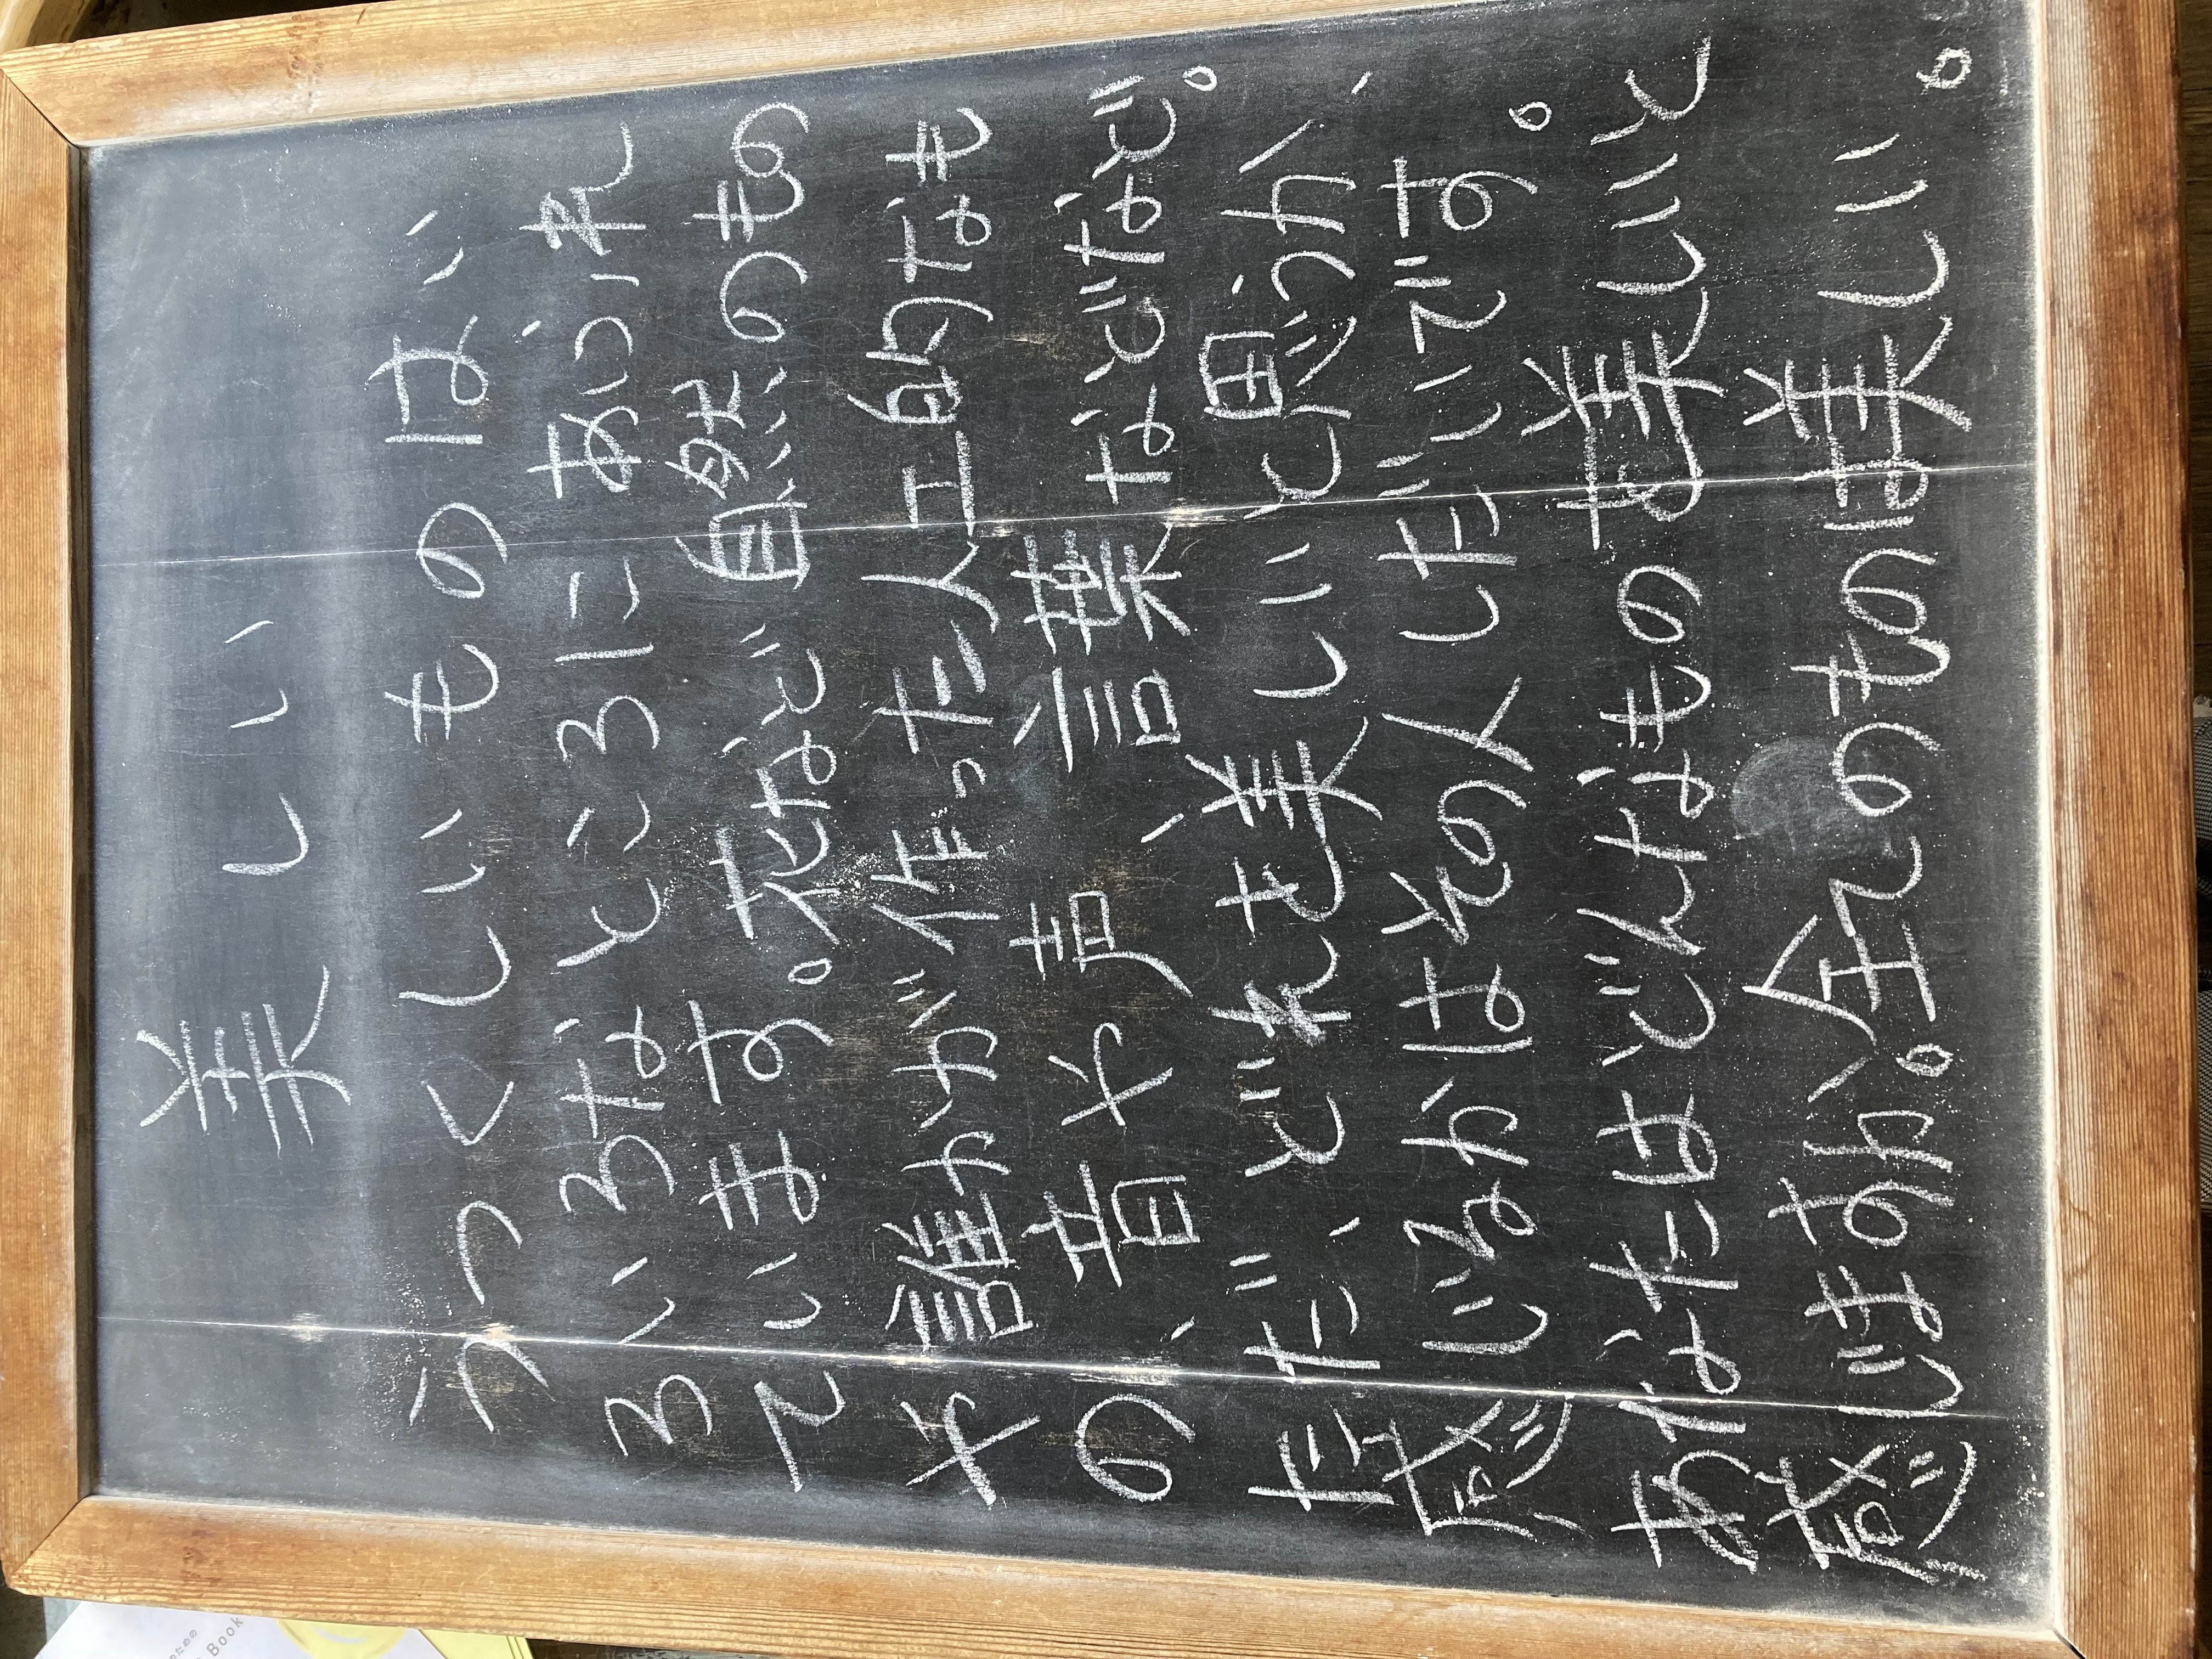 美しい
うつくしいものはい
ろいろなところにあふれ
ています。花など自然のもの
や誰かが作った人工的なも
の、音や声、言葉などなど。
ただ、どれを美しいと思うか、
感じるかはその人しだいです。
あなたはどんなものを美しいと
感じますか。全てのものは美しい。
のための
Book